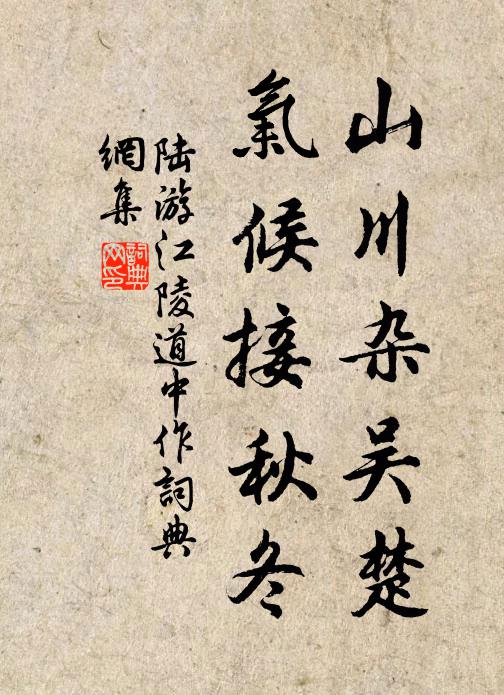 山川杂吴楚
氣候接秋冬
陆游江陵道中作詞典
網集
詞典
网印